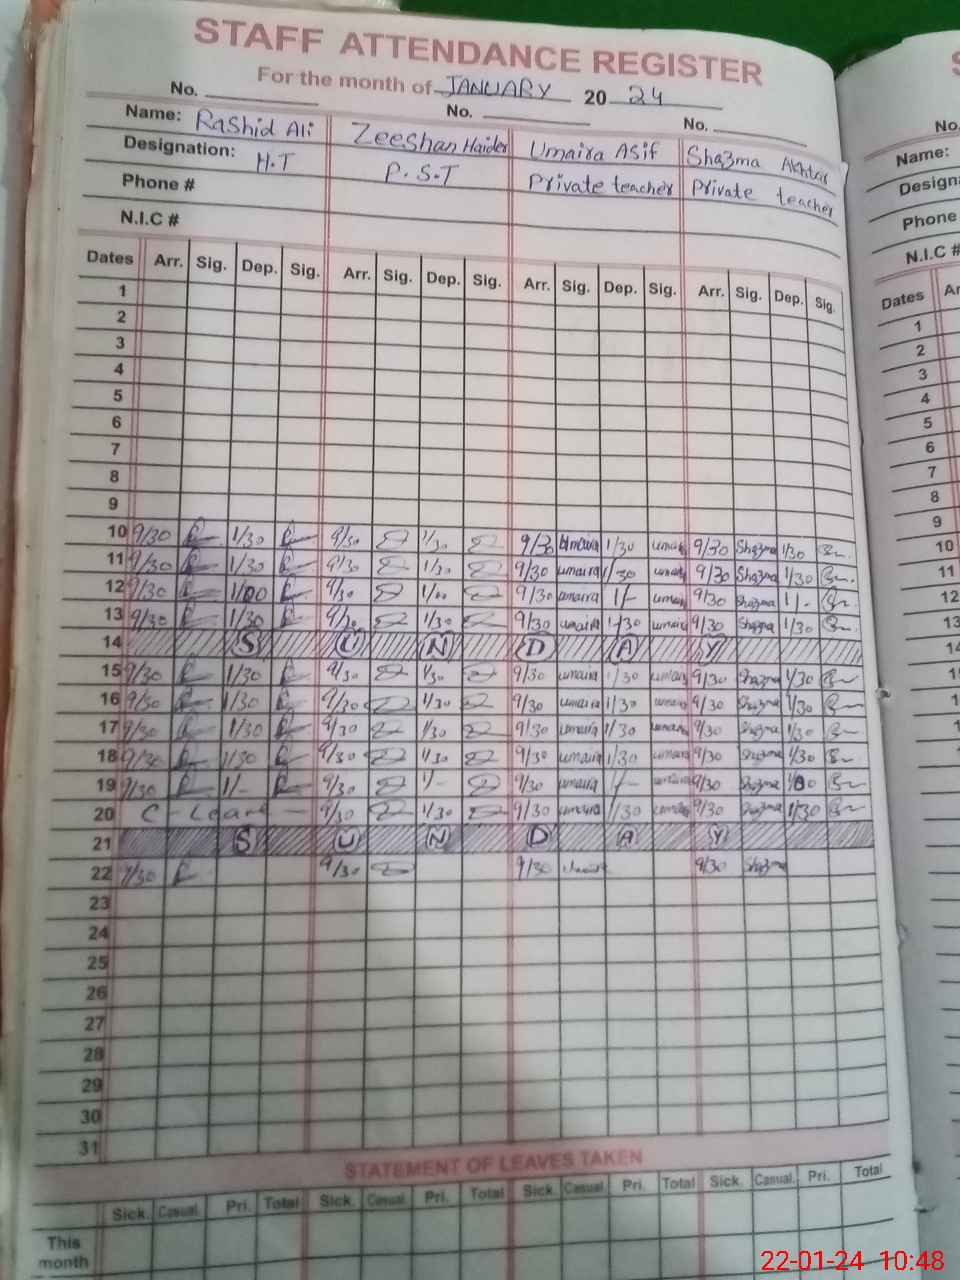 STAFF ATTENDANCE REGISTER
For the month of JANUARY 20 24
No. No. No.
Name: Rashid Ali Zeeshan Haider Umaira Asif Shazma Akhtar
Designation: H.T P.S.T Private teacher Private teacher
Phone #
N.I.C #
Dates Arr. Sig. Dep. Sig. Arr. Sig. Dep. Sig. Arr. Sig. Dep. Sig. Arr. Sig. Dep. Sig.
1
2
3
4
5
6
7
8
9
10 9/30 1/30 9/30 1/30 9/30 umaira 1/30 umaira 9/30 Shazma 1/30
11 9/30 1/30 9/30 1/30 9/30 umaira 1/30 umaira 9/30 Shazma 1/30
12 9/30 1/00 9/30 1/00 9/30 umaira 1/- umaira 9/30 Shazma 1/-
13 9/30 1/30 9/30 1/30 9/30 umaira 1/30 umaira 9/30 Shazma 1/30
14 S U N D A Y
15 9/30 1/30 9/30 1/30 9/30 umaira 1/30 umaira 9/30 Shazma 1/30
16 9/30 1/30 9/30 1/30 9/30 umaira 1/30 umaira 9/30 Shazma 1/30
17 9/30 1/30 9/30 1/30 9/30 umaira 1/30 umaira 9/30 Shazma 1/30
18 9/30 1/30 9/30 1/30 9/30 umaira 1/30 umaira 9/30 Shazma 1/30
19 9/30 1/- 9/30 1/- 9/30 umaira 1/- umaira 9/30 Shazma
20 C - Leave 9/30 1/30 9/30 umaira 1/30 umaira 9/30 Shazma 1/30
21 S U N D A Y
22 9/30 9/30 9/30 umaira 9/30 Shazma
23
24
25
26
27
28
29
30
31
STATEMENT OF LEAVES TAKEN
Sick. Casual. Pri. Total Sick. Casual. Pri. Total Sick. Casual. Pri. Total Sick. Casual. Pri. Total
This month
No.
Name:
Phone
N.I.C #
Dates
1
2
3
4
5
6
7
8
9
10
11
12
13
22-01-24 10:48